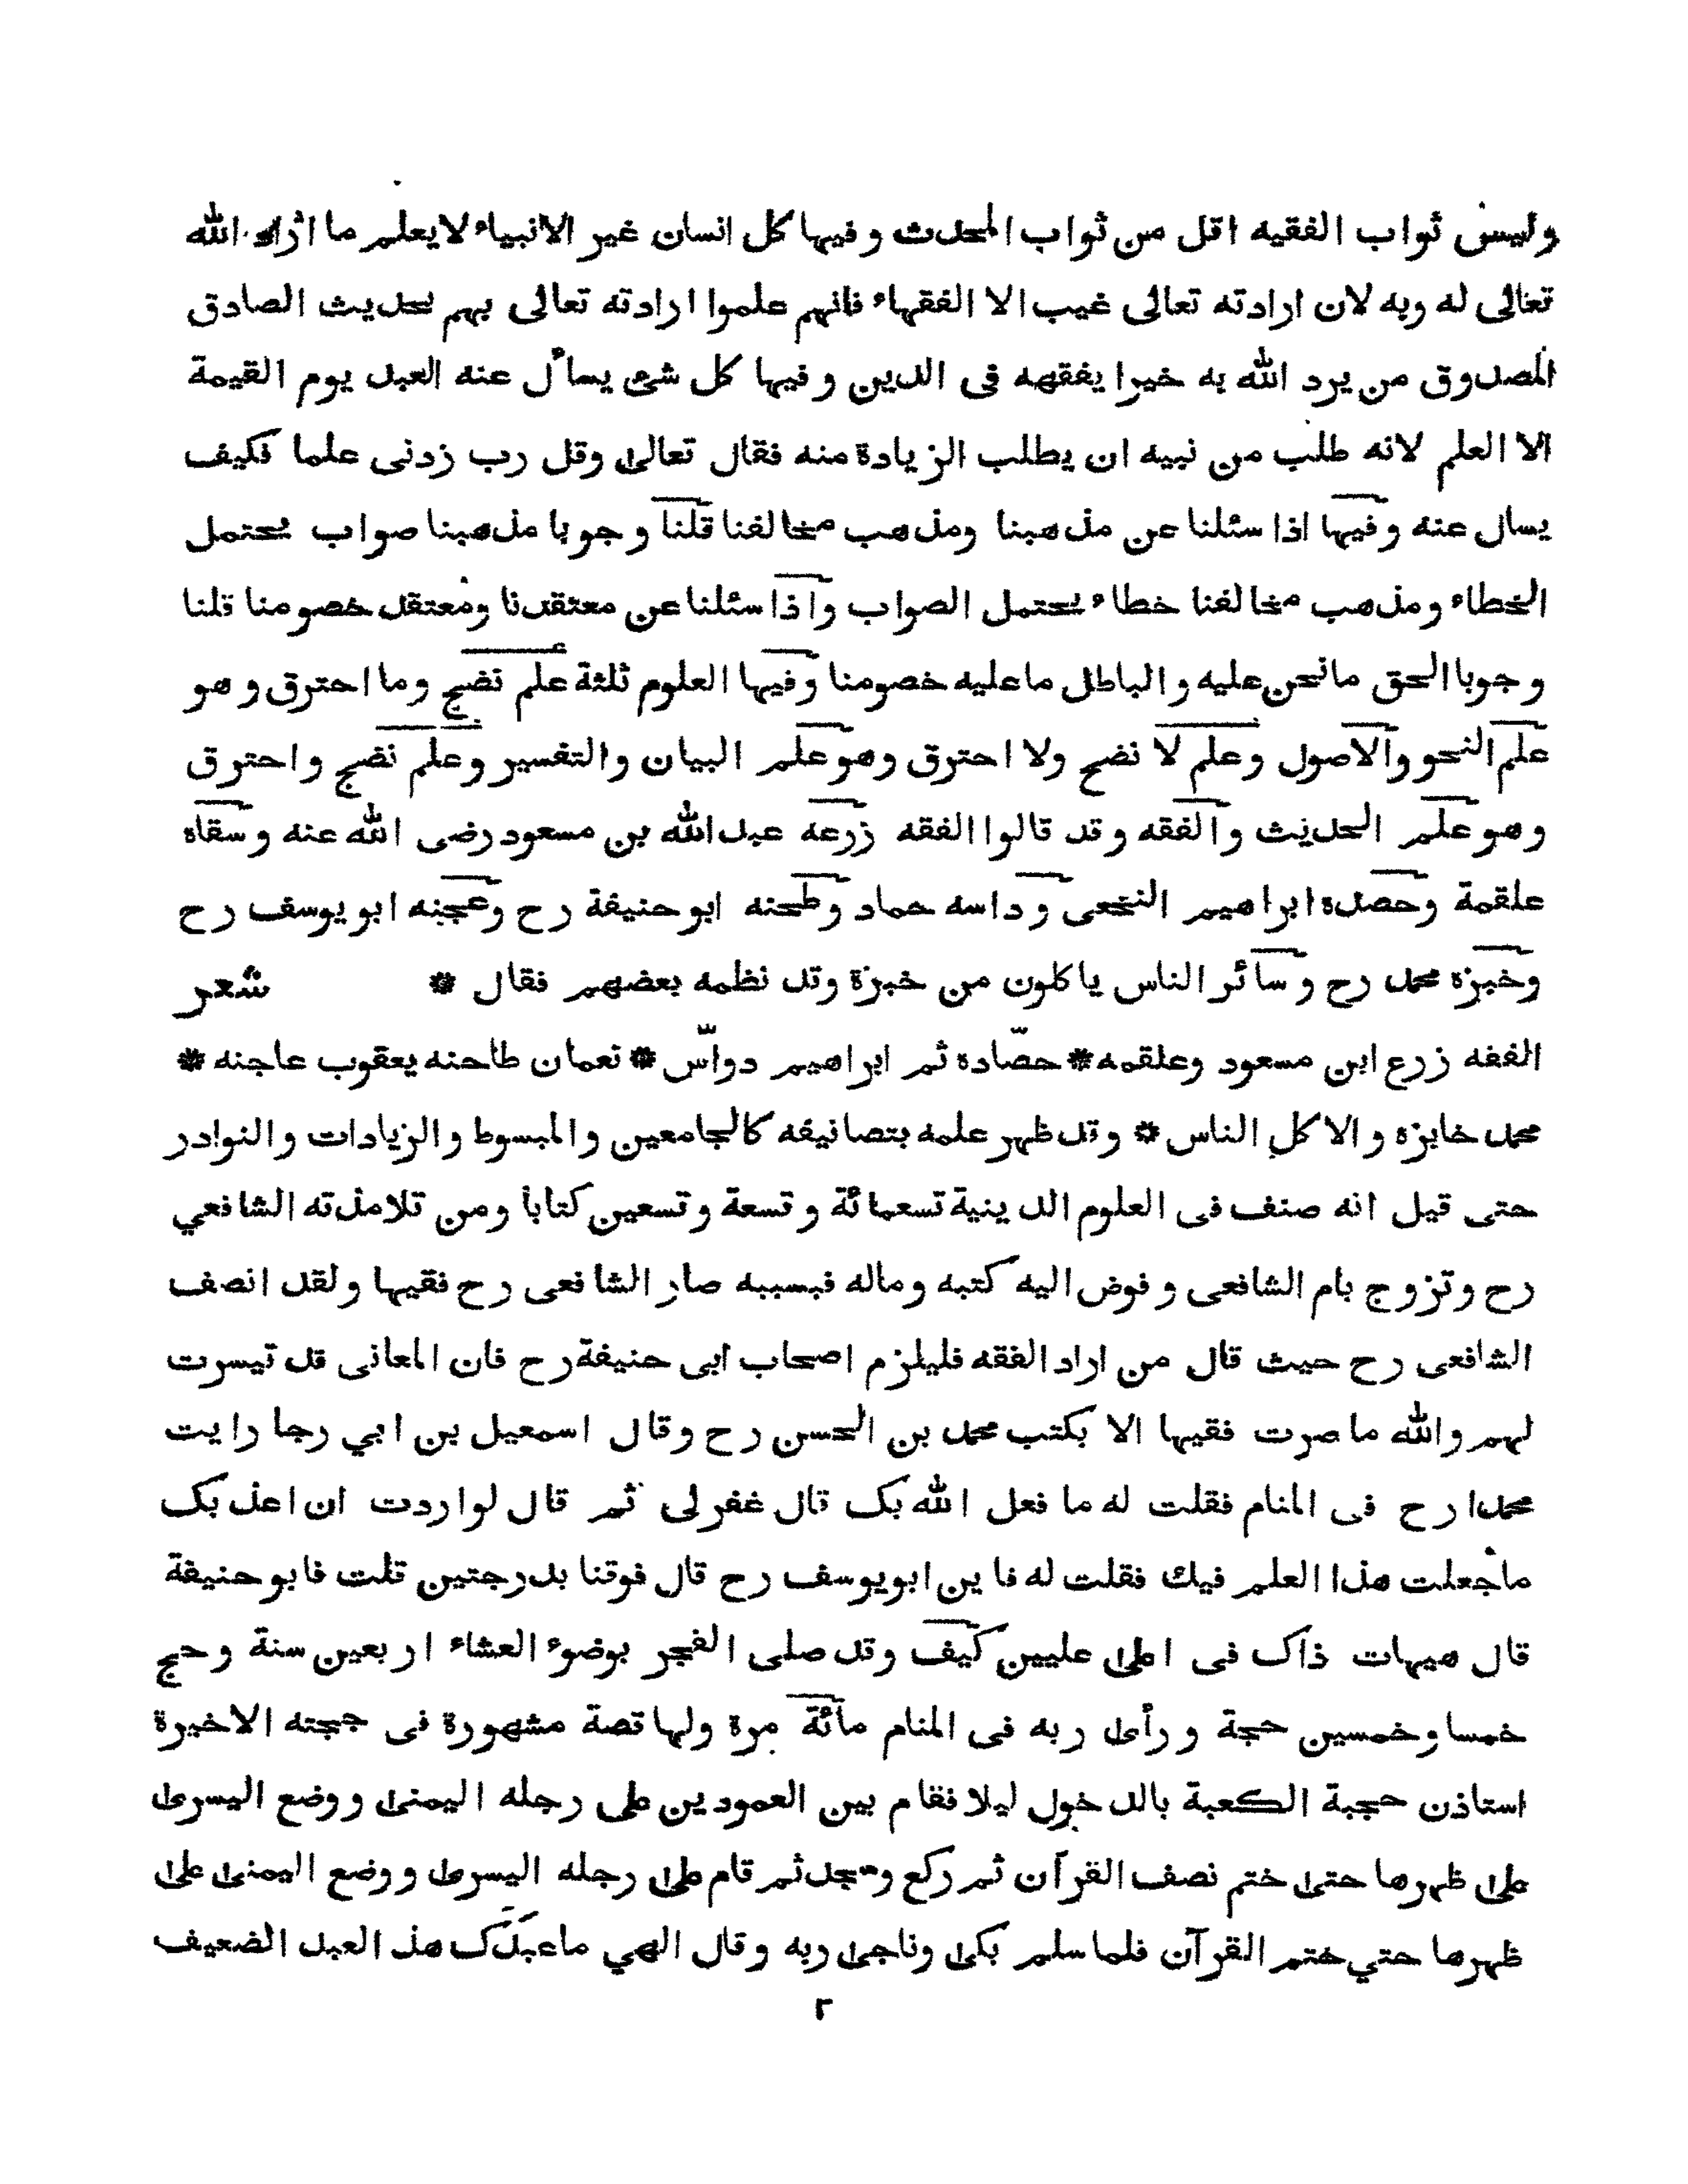 وليس ثواب الفقيه اقل من ثواب المحدث وفيها كل انسان غير الانبياء لا يعلم ما اراد الله
تعالى له وبه لان ارادته تعالى غيب الا الفقهاء فانهم علموا ارادته تعالى بهم لحديث الصادق
المصدوق من يرد الله به خيرا يفقهه فى الدين وفيها كل شئ يسأل عنه العبد يوم القيمة
الا العلم لانه طلب من نبيه ان يطلب الزيادة منه فقال تعالى وقل رب زدنى علما فكيف
يسال عنه وفيها اذا سئلنا عن مذهبنا ومذهب مخالفنا قلنا وجوبا مذهبنا صواب يحتمل
الخطاء ومذهب مخالفنا خطاء يحتمل الصواب واذا سئلنا عن معتقدنا ومعتقد خصومنا قلنا
وجوبا الحق مانحن عليه والباطل ماعليه خصومنا وفيها العلوم ثلثة علم نضج وما احترق وهو
علم النحو والاصول وعلم لا نضج ولا احترق وهو علم البيان والتفسير وعلم نضج واحترق
وهو علم الحديث والفقه وقد قالوا الفقه زرعه عبد الله بن مسعود رضى الله عنه وسقاه
علقمة وحصده ابراهيم النخعى وداسه حماد وطحنه ابو حنيفة رح وعجنه ابو يوسف رح
وخبزه محمد رح وسائر الناس ياكلون من خبزة وقد نظمه بعضهم فقال * شعر
الفقه زرع ابن مسعود وعلقمه * حصّادة ثم ابراهيم دوّاس * نعمان طاحنه يعقوب عاجنه *
محمد خابزه والاكل الناس * وقد ظهر علمه بتصانيفه كالجامعين والمبسوط والزيادات والنوادر
حتى قيل انه صنف فى العلوم الدينية تسعمائة وتسعة وتسعين كتابا ومن تلامذته الشافعي
رح وتزوج بام الشافعى وفوض اليه كتبه وماله فبسببه صار الشافعى رح فقيها ولقد انصف
الشافعى رح حيث قال من اراد الفقه فليلزم اصحاب ابى حنيفة رح فان المعانى قد تيسرت
لهم والله ما صرت فقيها الا بكتب محمد بن الحسن رح وقال اسمعيل بن ابي رجا رايت
محمدا رح فى المنام فقلت له ما فعل الله بك قال غفرلى ثم قال لو اردت ان اعذبك
ماجعلت هذا العلم فيك فقلت له فاين ابو يوسف رح قال فوقنا بدرجتين قلت فابو حنيفة
قال هيهات ذاك فى اعلى عليين كيف وقد صلى الفجر بوضوء العشاء اربعين سنة وحج
خمسا وخمسين حجة ورأى ربه فى المنام مائة مرة ولها قصة مشهورة فى حجته الاخيرة
استاذن حجبة الكعبة بالدخول ليلا فقام بين العمودين على رجله اليمنى ووضع اليسرى
على ظهرها حتى ختم نصف القرآن ثم ركع وسجد ثم قام على رجله اليسرى ووضع اليمنى على
ظهرها حتي ختم القرآن فلما سلم بكى وناجى ربه وقال الهي ماعبدك هذ العبد الضعيف
٢